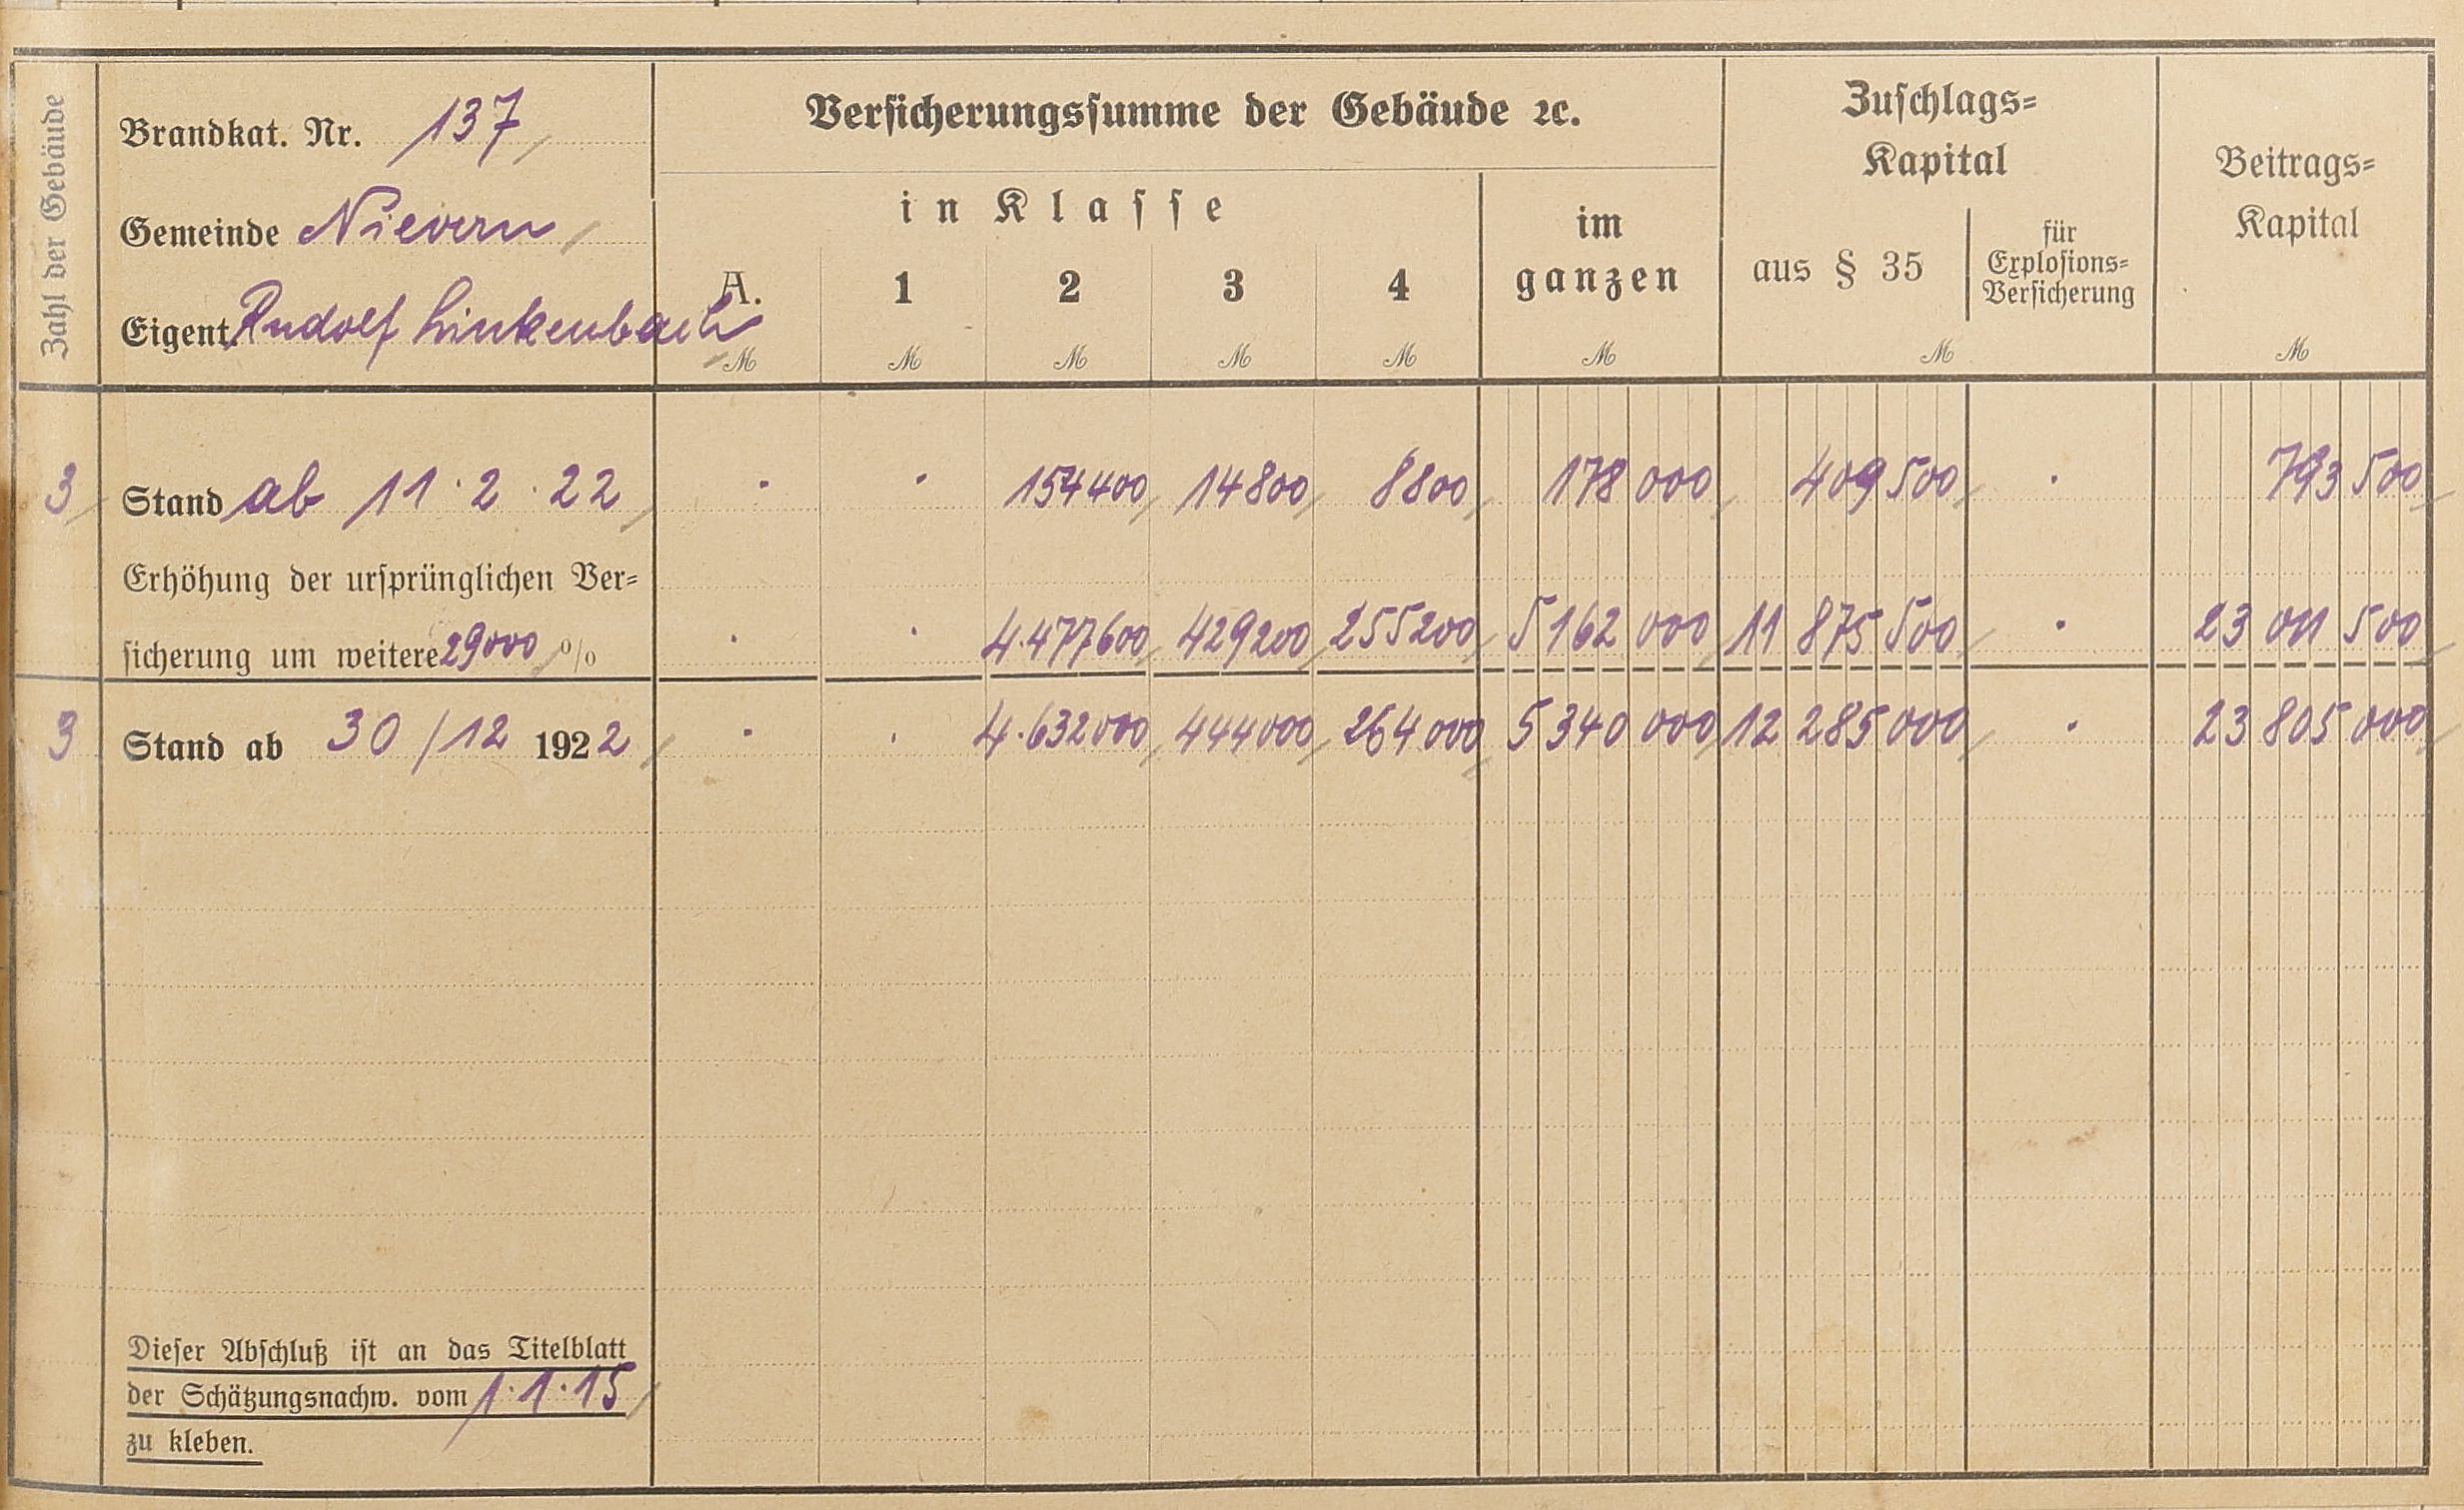 Zahl der Gebäude
Brandkat. Nr. 137
Gemeinde Nievern
Eigent. Rudolf Linkenbach
Versicherungssumme der Gebäude ꝛc.
in Klasse
A. 1 2 3 4
im
ganzen
Zuschlags-
Kapital
aus § 35
für
Explosions-
Versicherung
Beitrags-
Kapital
M M M M M M M M
3 Stand ab 11·2·22 · · 154400 14800 8800 178 000 409 500 · 793 500
Erhöhung der ursprünglichen Ver-
sicherung um weitere 29000 % · · 4·477600 429200 255200 5 162 000 11 875 500 · 23 011 500
3 Stand ab 30/12 1922 · · 4·632000 444000 264000 5 340 000 12 285 000 · 23 805 000
Dieser Abschluß ist an das Titelblatt
der Schätzungsnachw. vom 1·1·15
zu kleben.